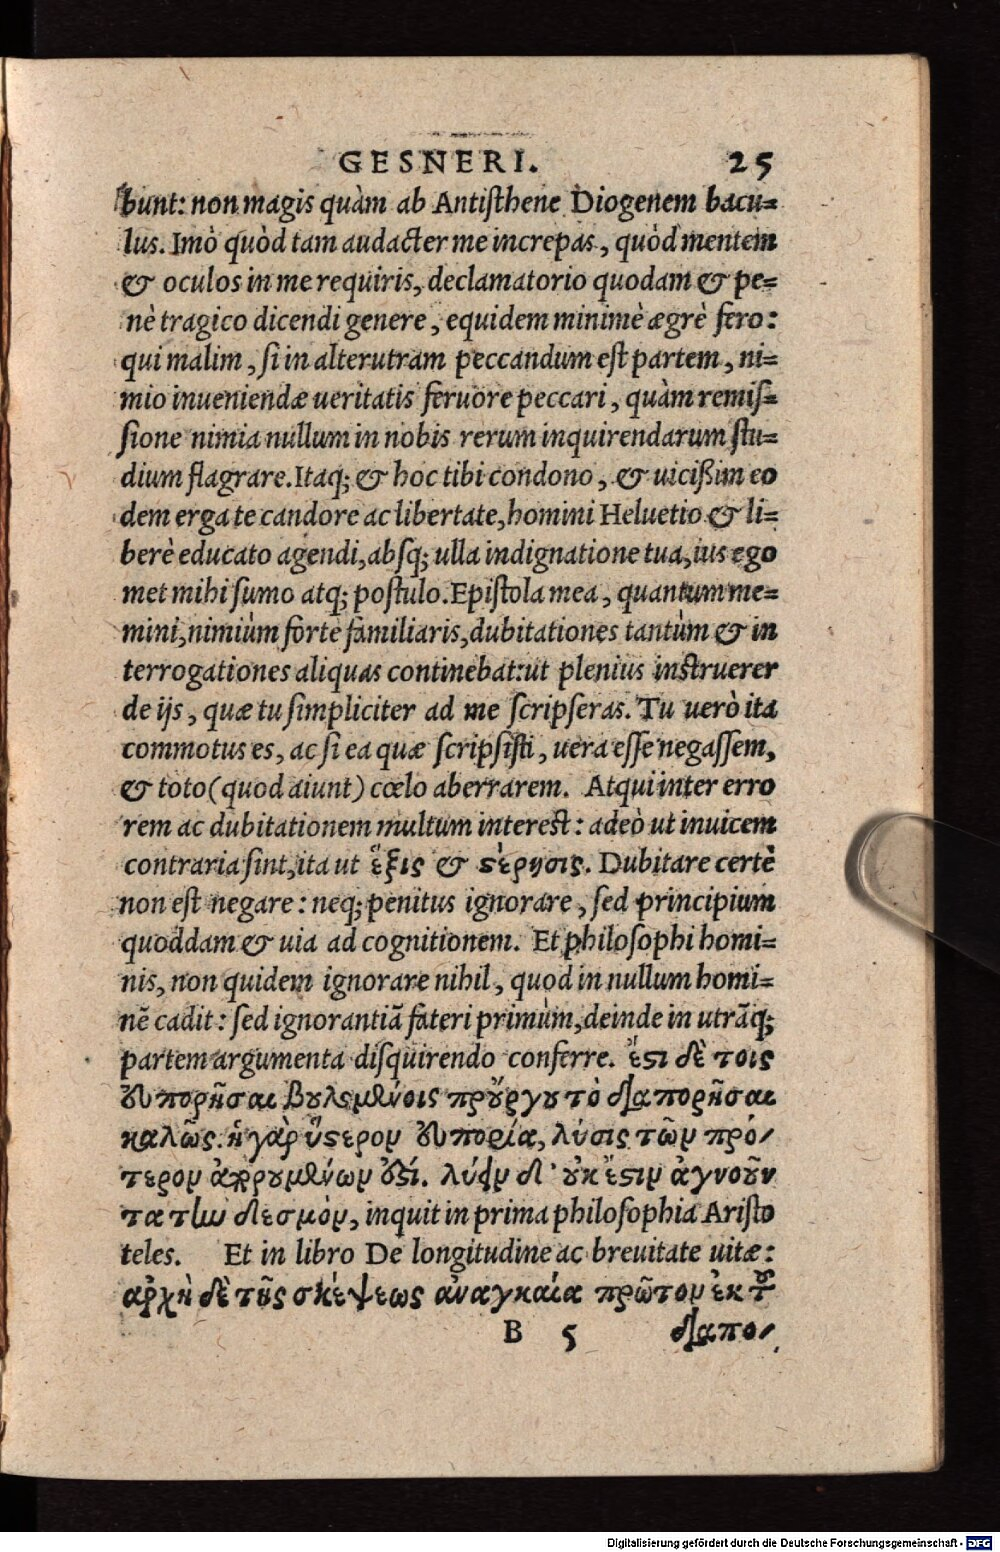 GESNERI. 25
bunt: non magis quàm ab Antiſthene Diogenem bacu=
lus. Imò quòd tam audacter me increpas, quòd mentem
& oculos in me requiris, declamatorio quodam & pe=
nè tragico dicendi genere, equidem minimè ægrè fero:
qui malim, ſi in alterutram peccandum eſt partem, ni=
mio inueniendæ ueritatis feruore peccari, quàm remiſ=
ſione nimia nullum in nobis rerum inquirendarum ſtu=
dium flagrare. Itaq; & hoc tibi condono, & uicißim eo
dem erga te candore ac libertate, homini Heluetio & li=
berè educato agendi, abſq; ulla indignatione tua, ius ego
met mihi ſumo atq; poſtulo. Epiſtola mea, quantum me=
mini, nimiùm forte familiaris, dubitationes tantùm & in
terrogationes aliquas continebat: ut plenius inſtruerer
de ijs, quæ tu ſimpliciter ad me ſcripſeras. Tu uerò ita
commotus es, ac ſi ea quæ ſcripſiſti, uera eſſe negaſſem,
& toto (quod aiunt) cœlo aberrarem. Atqui inter erro
rem ac dubitationem multum intereſt: adeò ut inuicem
contraria ſint, ita ut ἕξις & ϛέρησις. Dubitare certè
non eſt negare: neq; penitus ignorare, ſed principium
quoddam & uia ad cognitionem. Et philoſophi homi=
nis, non quidem ignorare nihil, quod in nullum homi=
nẽ cadit: ſed ignorantiã fateri primùm, deinde in utrãq;
partem argumenta diſquirendo conferre. ἔϛι δὲ τοις
εὐπορῆσαι βουλομένοις προὔργου τὸ διαπορῆσαι
καλῶς. ἡ γὰρ ὕϛερον εὐπορία, λύσις τῶν πρό-
τερον ἀπορουμένων ἐϛί. λύειν δ' οὐκ ἔϛιν ἀγνοοῦν
τα τὸν δεσμὸν, inquit in prima philoſophia Ariſto
teles. Et in libro De longitudine ac breuitate uitæ:
ἀρχὴ δὲ τῆς σκέψεως ἀναγκαία πρῶτον ἐκ τοῦ
B 5 διαπο-
Digitalisierung gefördert durch die Deutsche Forschungsgemeinschaft - DFG